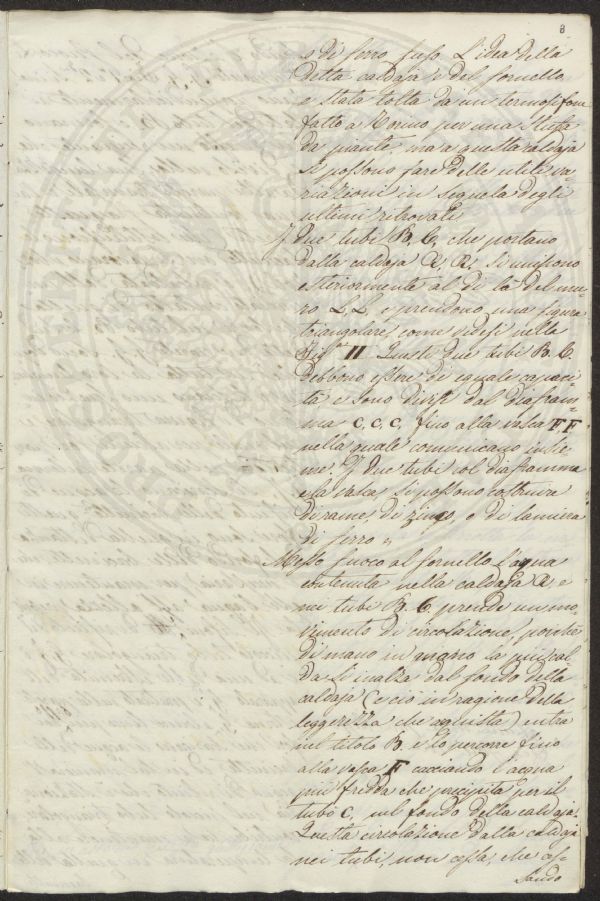 8
o di ferro fuso. L'idea della
detta caldaja e del fornello
e stata tolta da un termosifone
fatto a Torino per una Stufa
da piante, ma a questa caldaja
si possono fare delle utili va-
riazioni in seguela degli
ultimi ritrovati
I due tubi B. C. che portano
dalla caldaja R, R. si uniscono
esteriormente al di là del mu-
ro L. L. e prendono una figura
triangolare, come vedesi nella
Fig.ª II Questi due tubi B. C.
debbono essere di eguale capaci-
tà e sono divisi dal diafram-
ma C, C, C, fino alla vasca F F
nella quale comunicano insie-
me. I due tubi col diaframma
e la vasca si possono costruire
di rame, di zinco, o di lamiera
di ferro
Messo fuoco al fornello l'acqua
contenuta nella caldaja R. e
nei tubi B. C. prende un mo-
vimento di circolazione, poichè
di mano in mano la più cal
da si inalza dal fondo della
caldaja (e ciò in ragione della
leggerezza che aquista) entra
nel tubo B. e lo percorre fino
alla vasca F cacciando l'acqua
più fredda che precipita per il
tubo C, nel fondo della caldaja.
Questa circolazione dalla caldaja
nei tubi, non cessa, che ces-
sando